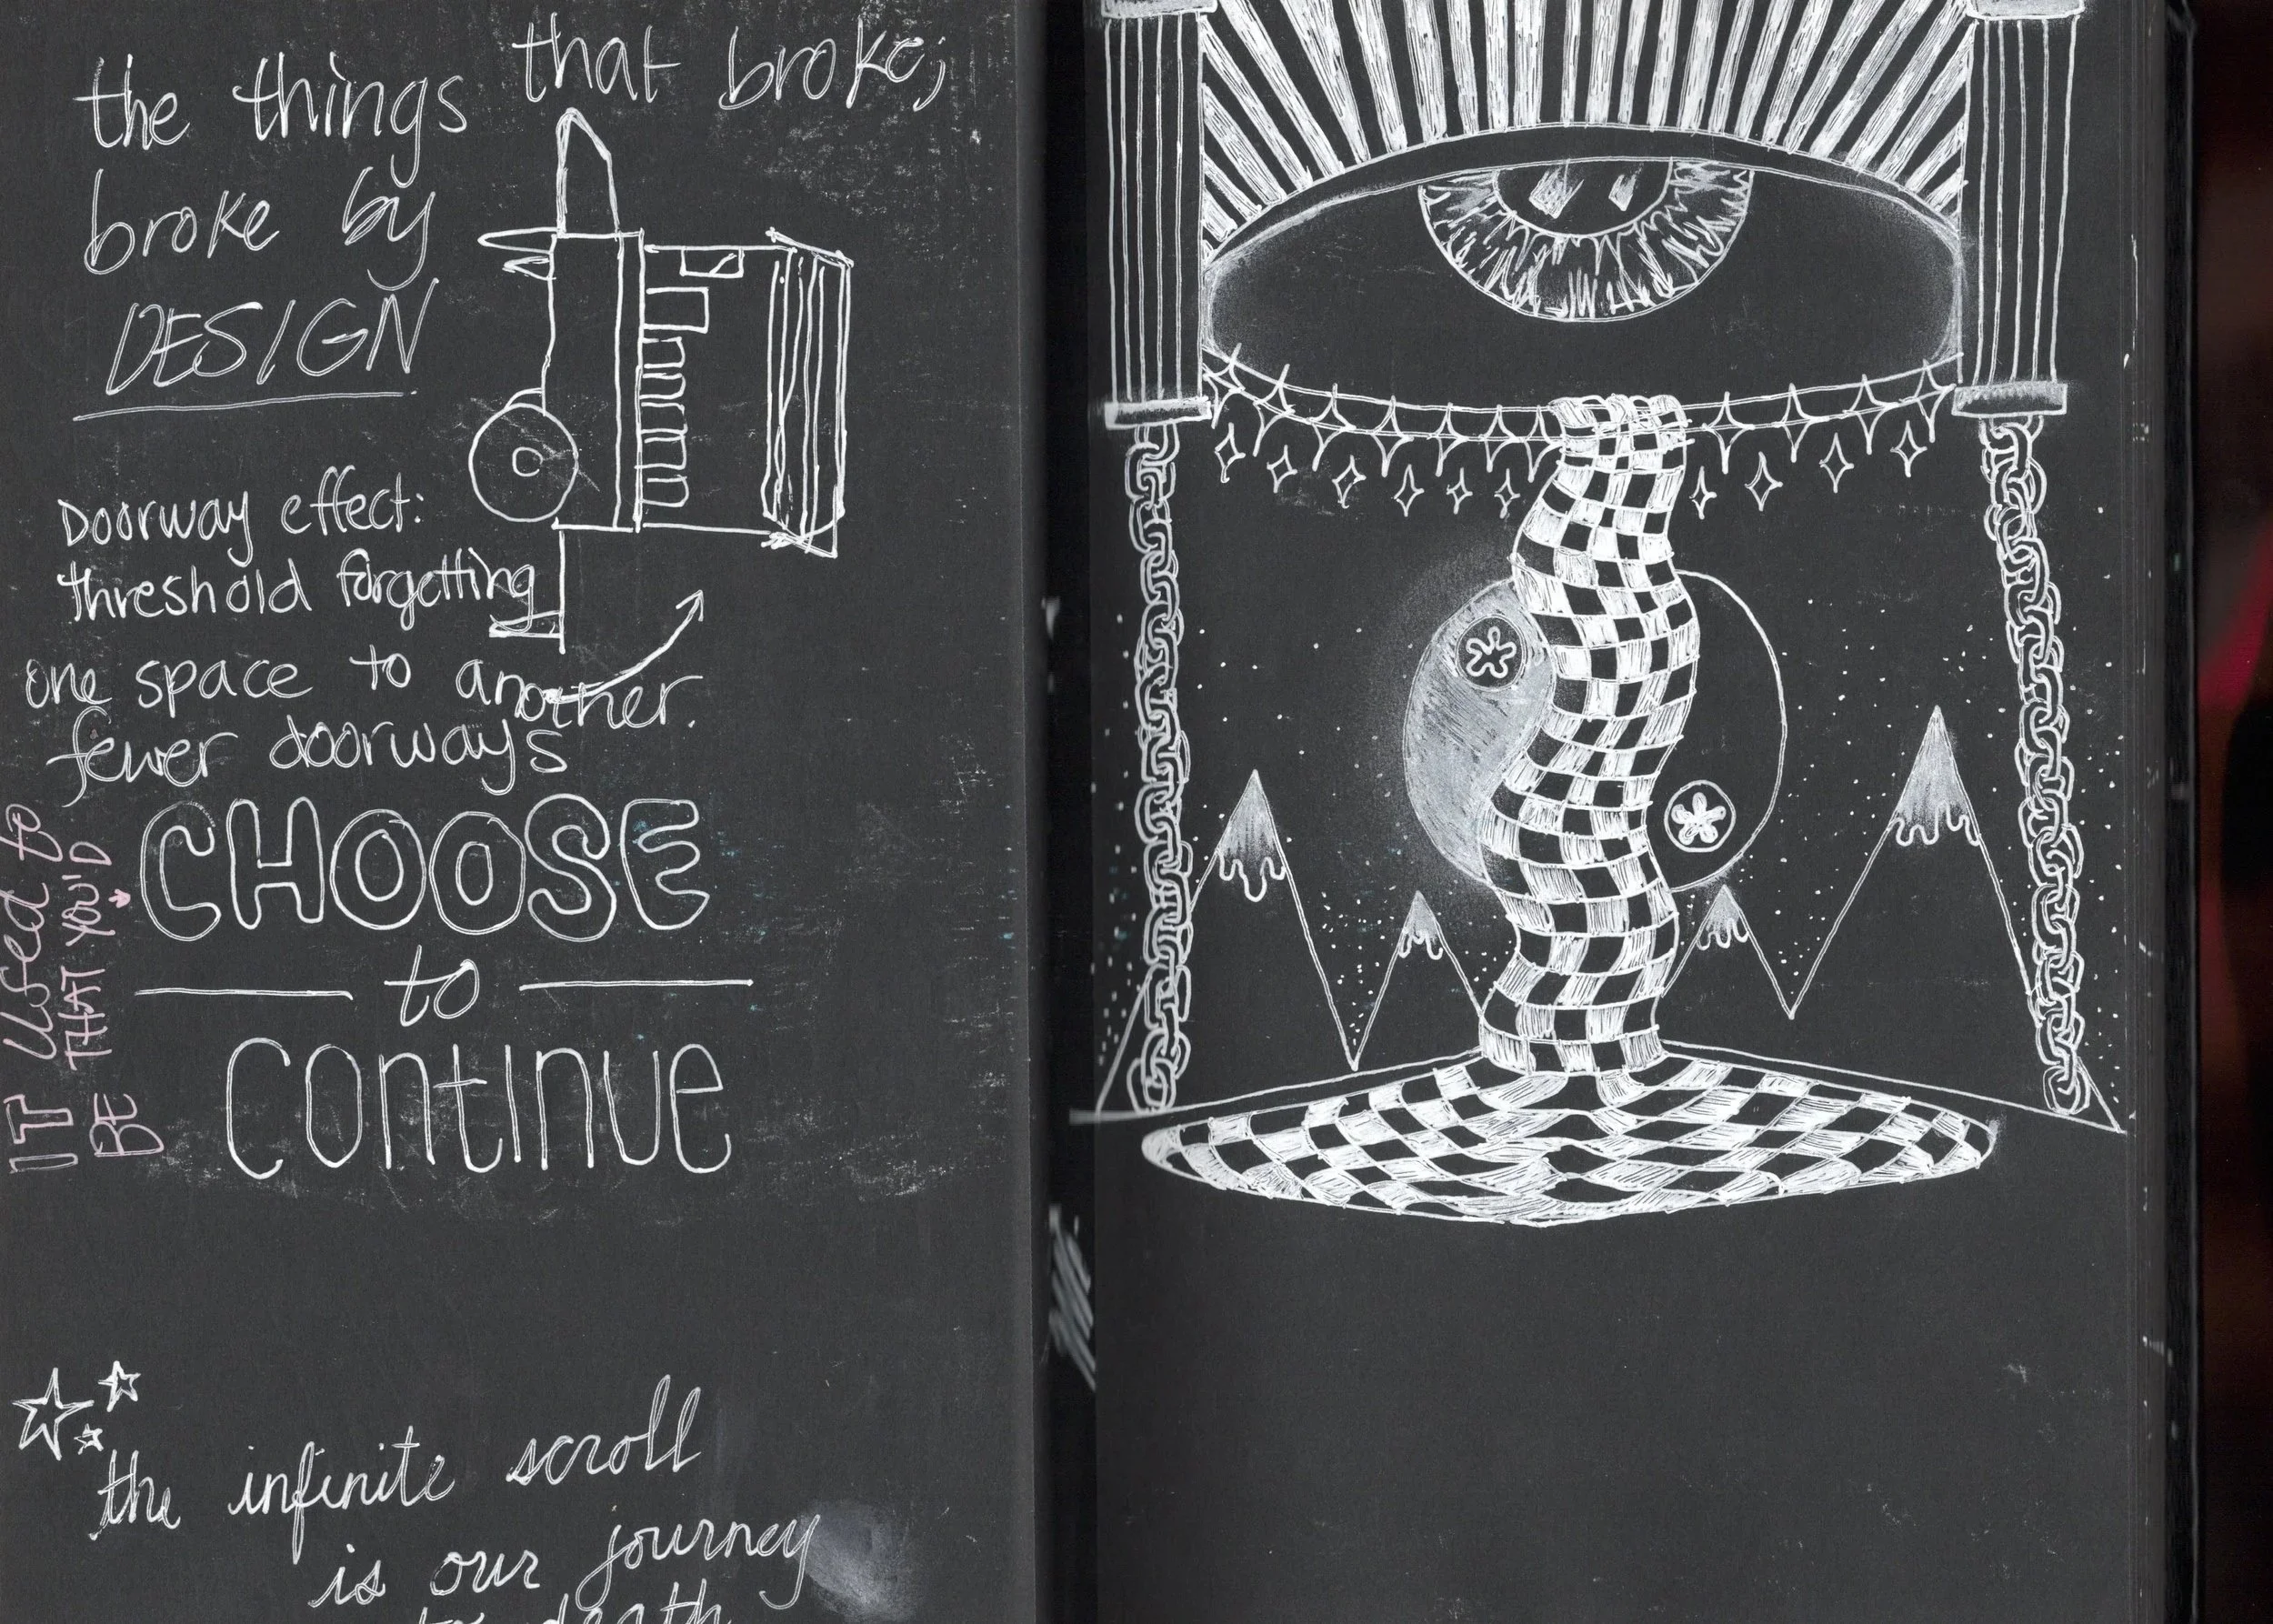 the things that broke;
broke by
DESIGN
Doorway effect:
threshold forgetting
one space to another.
fewer doorways
IT used to
BE THAT YOU'D
CHOOSE
to
continue
the infinite scroll
is our journey
to death